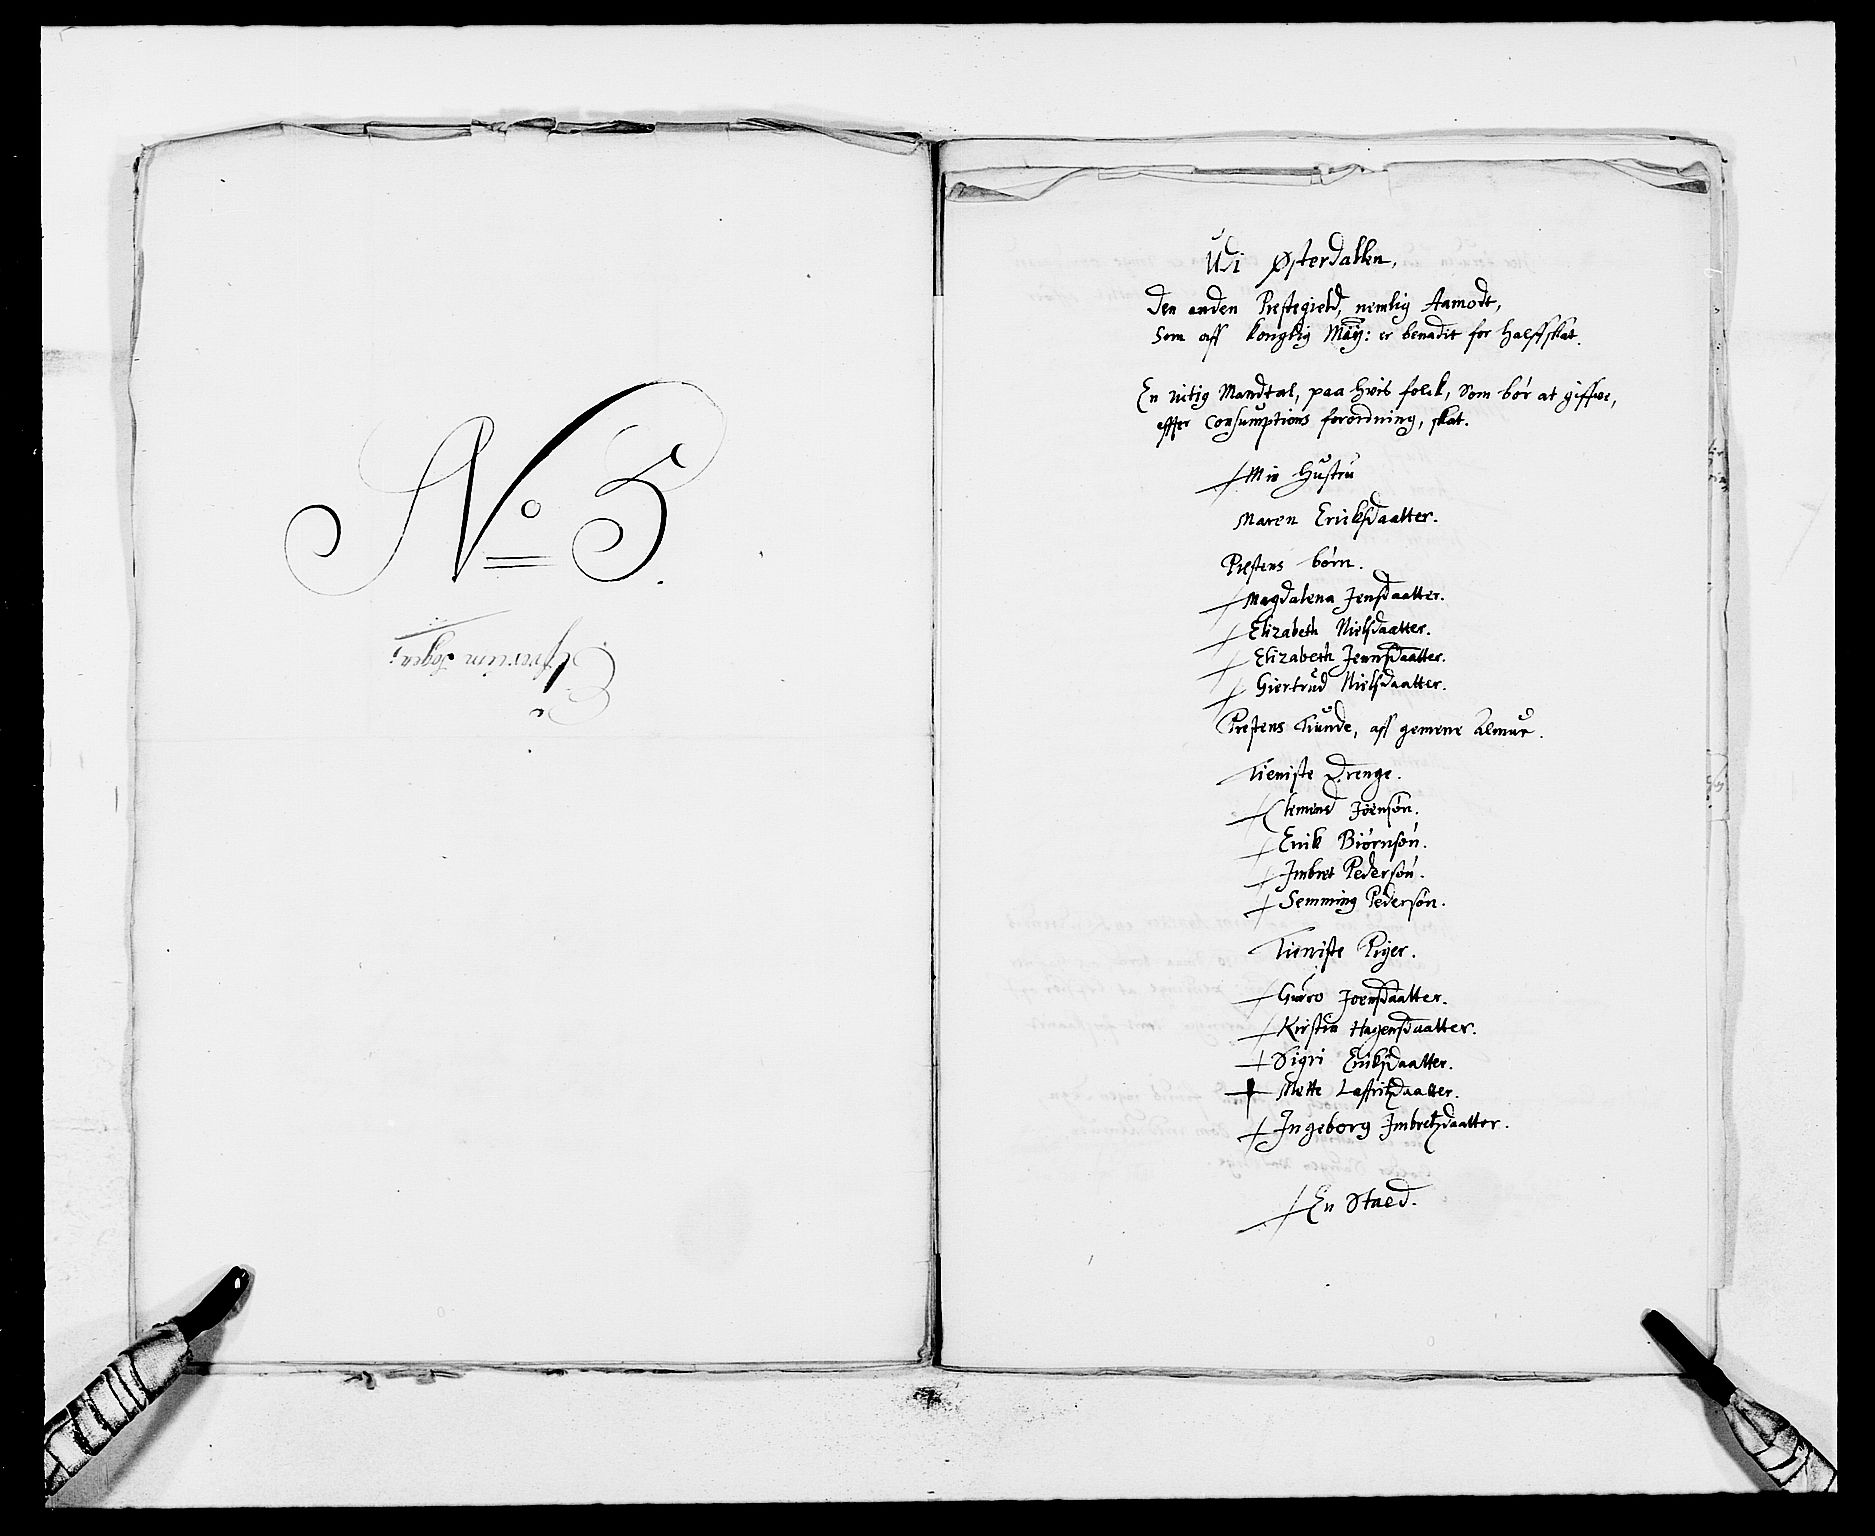 No 5.
Udi Østerdallen,
Den anden Prestegield, nemlig Aamodt,
Som aff konglig Mäy: er benadit for halffskat.
En rictig Mandtal, paa hvis folck, Som bør at giffve,
effter Consumptions forordning, skat.
Min Hustru
Maren Ericksdaatter.
Prestens børn.
Magdalena Jensdaatter.
Elizabeth Nielsdaatter.
Elizabeth Jennsdaatter.
Giertrud Nielsdaatter.
Prestens Tiunde, aff gemene Almue.
Tieniste Drenge.
Clemend Joensøn.
Erik Biørnsøn.
Jmbret Pedersøn.
Semming Pedersøn.
Tieniste Piger.
Gurro Joensdaatter.
Kirstin Hagensdaatter.
Sigri Eriksdaatter.
Mette Laffritzdaatter.
Jngeborg Jmbretzdaatter.
En Staed.